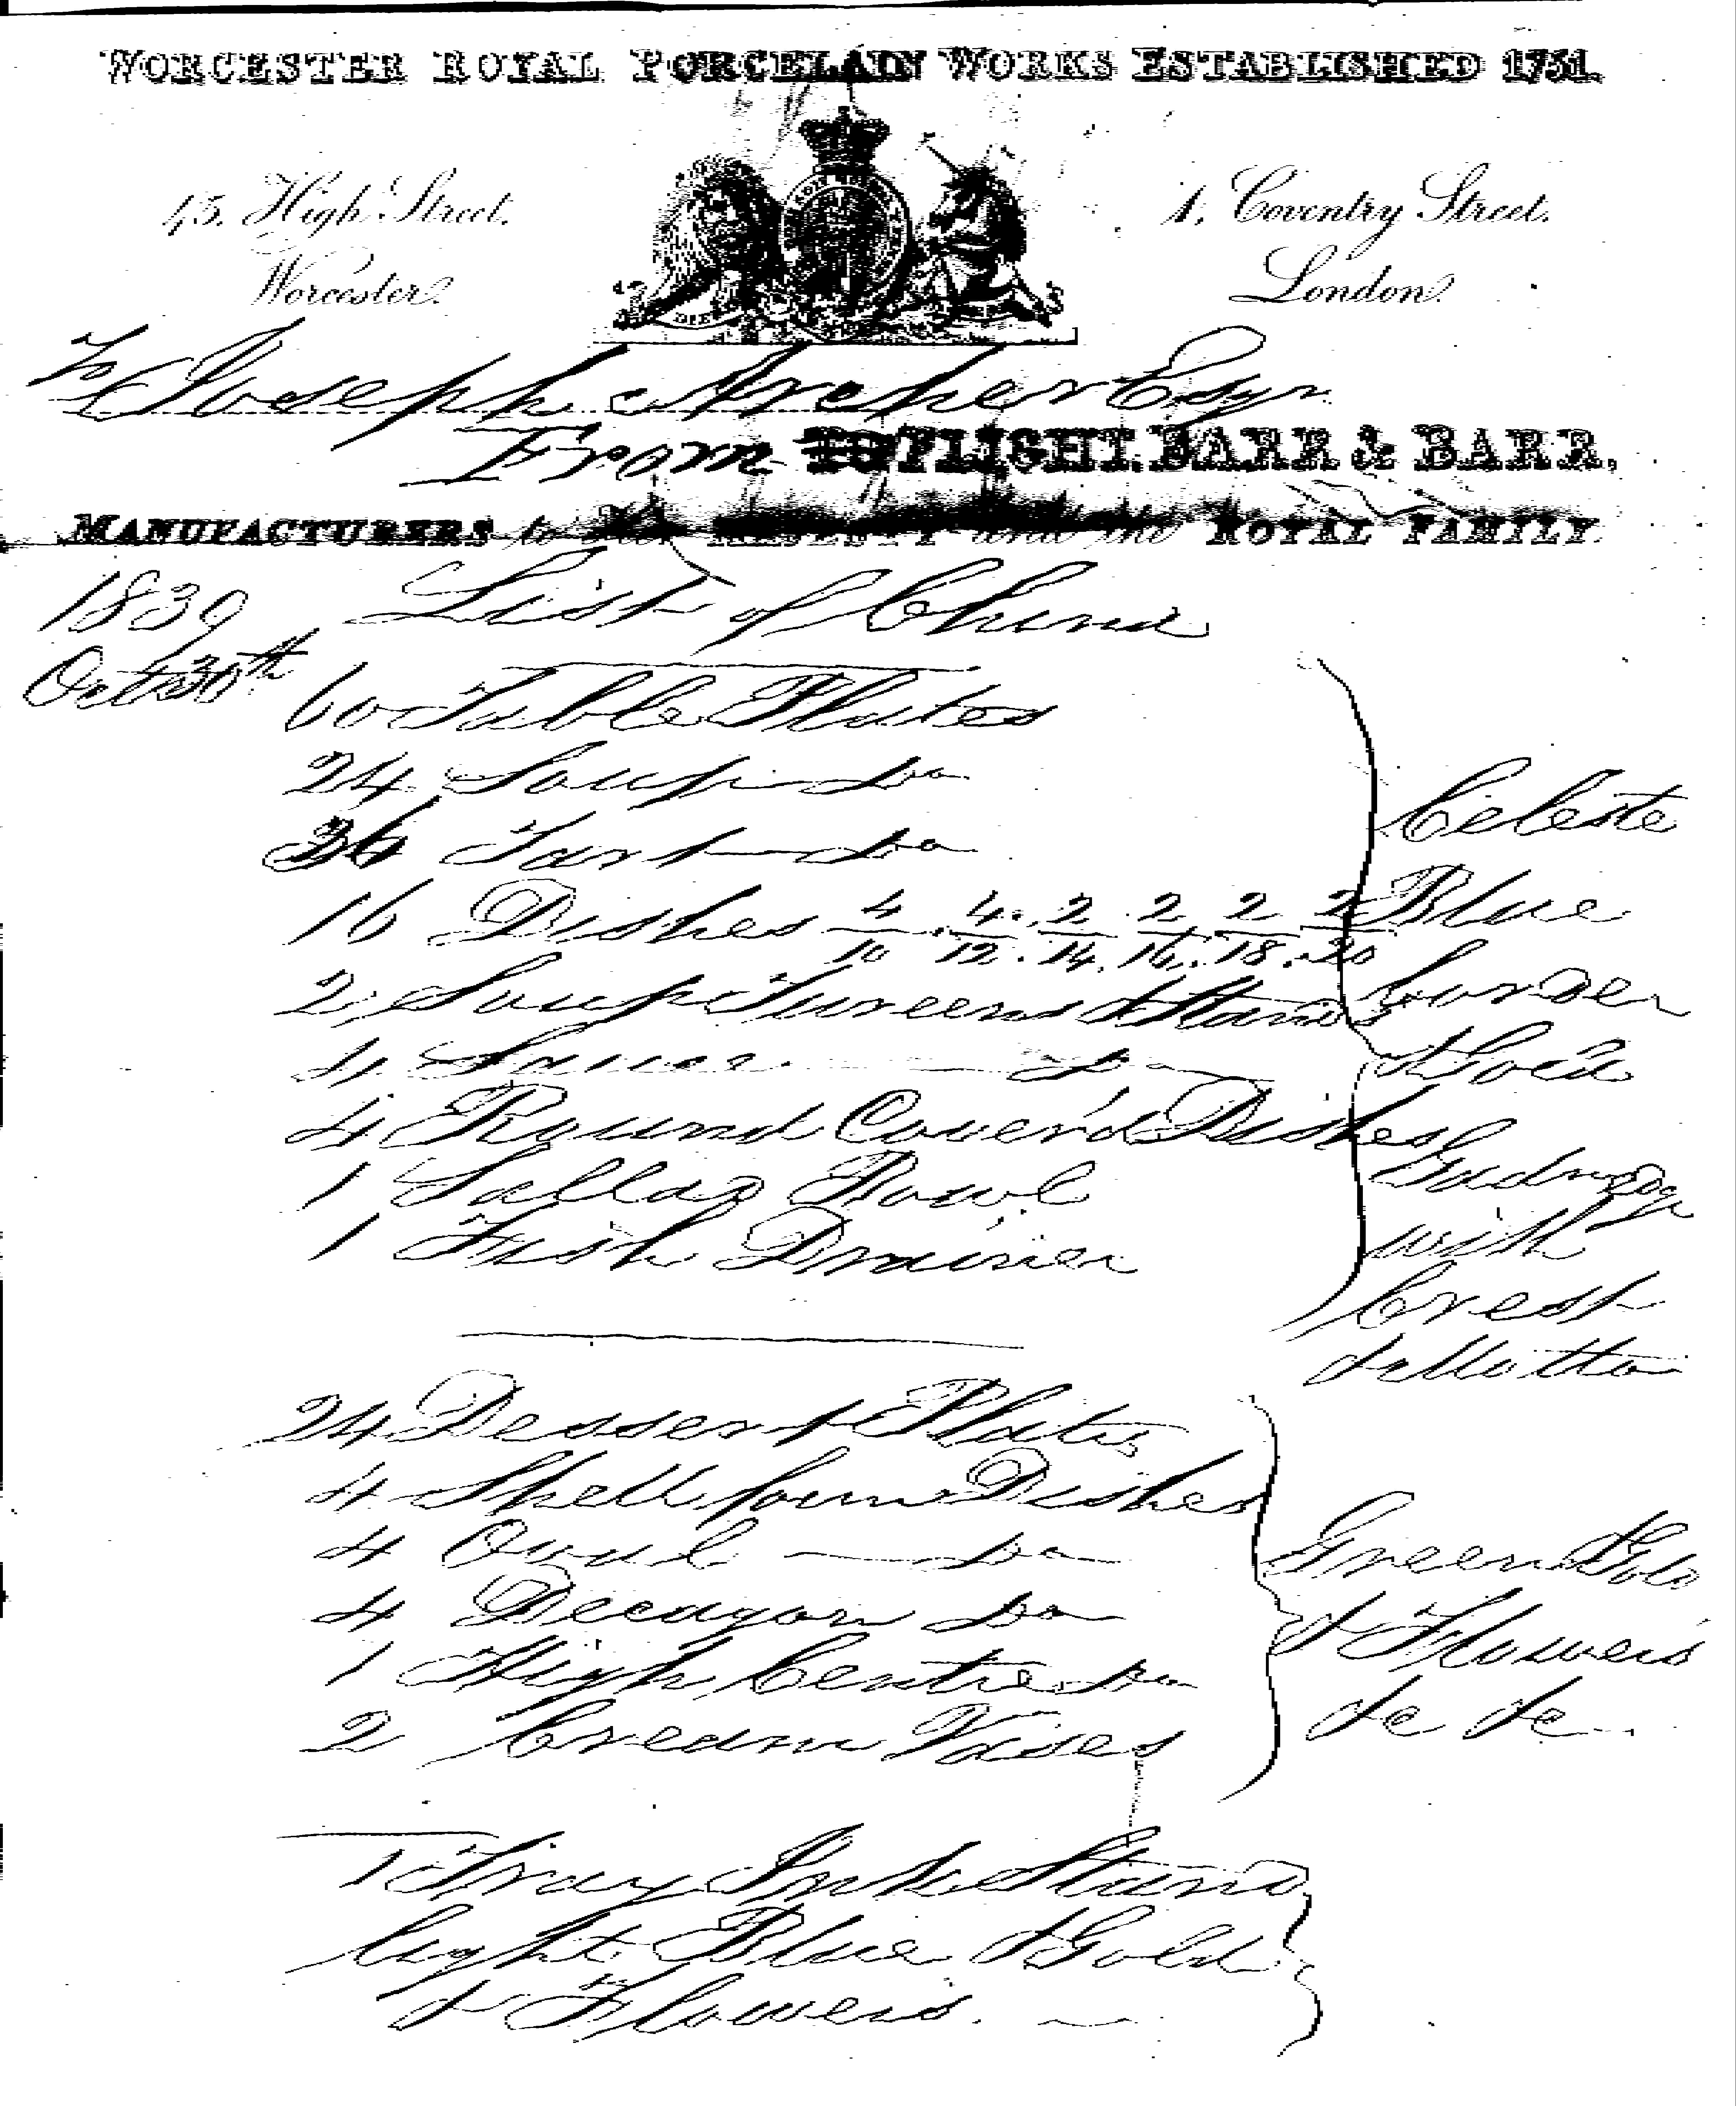 WORCESTER ROYAL PORCELAIN WORKS ESTABLISHED 1751.
45. High Street. 1, Coventry Street.
Worcester. London
To Joseph Archer Esqr
From TO FLIGHT, BARR & BARR,
MANUFACTURERS to MAJESTY and the ROYAL FAMILY.
1839 List of China
Oct 30th 60 Table Plates
24 Soup Do
36 Tart Do
16 Dishes 4/10 . 4/12 . 2/14 . 2/16 . 2/18 . 2/20
2 Soup Tureens & Stands
4 Sauce Do
4 Round Cover'd Dishes
1 Sallad Bowl
1 Fish Drainer
Celeste
Blue
border
& Gold
Gadroon
Edge
with
Crest
& Motto
24 Dessert Plates
4 Shell form Dishes
4 Oval Do
4 Decagon Do
1 High Centre Do
2 Cream Vases
Green Gold
& Flowers
&c &c
1 Tray Ink Stand
light Blue & Gold
& Flowers.